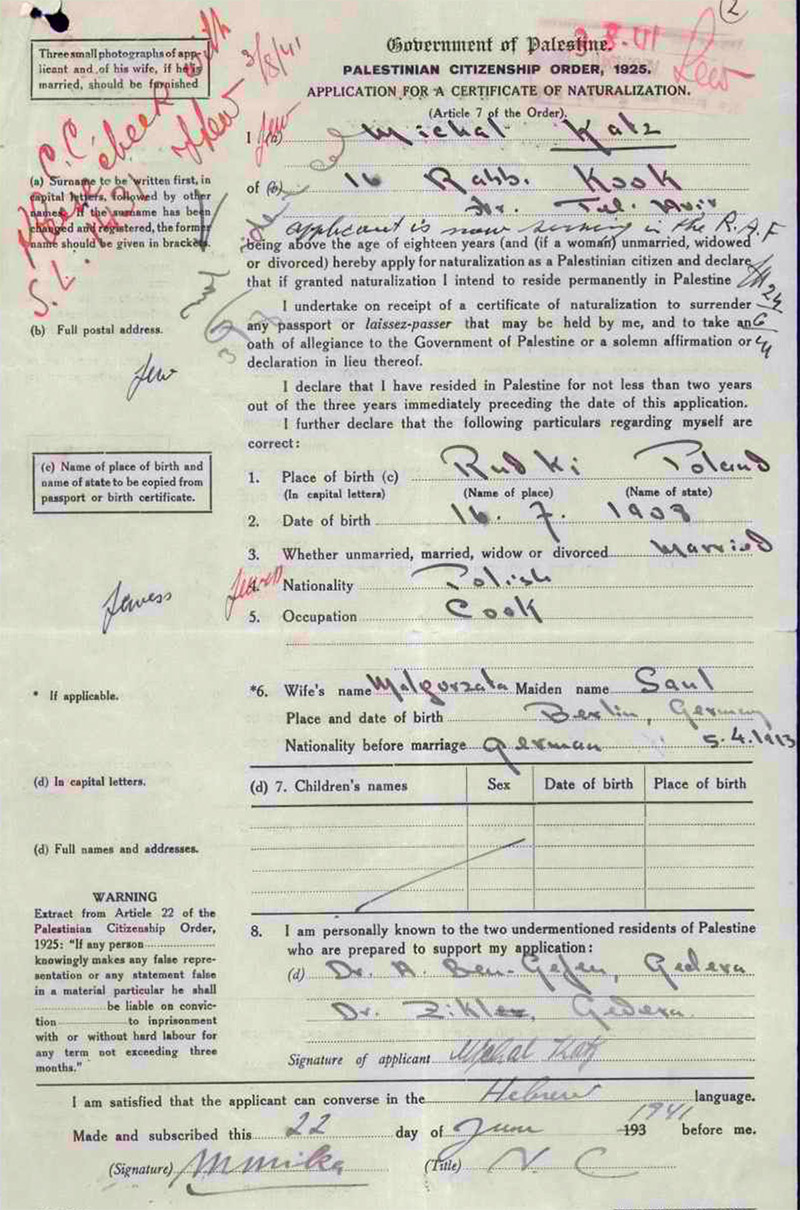 2
Government of Palestine.
PALESTINIAN CITIZENSHIP ORDER, 1925.
APPLICATION FOR A CERTIFICATE OF NATURALIZATION.
(Article 7 of the Order).
Three small photographs of app-
licant and of his wife, if he is
married, should be furnished
3/8/41
C.C.
Please check with
I (a) Michal Katz
of (b) 16 Rabb. Kook
Str. Tel-Aviv
applicant is now serving in the R.A.F
(a) Surname to be written first, in
capital letters, followed by other
names. If the surname has been
changed and registered, the former
name should be given in brackets.
being above the age of eighteen years (and (if a woman) unmarried, widowed
or divorced) hereby apply for naturalization as a Palestinian citizen and declare
that if granted naturalization I intend to reside permanently in Palestine
I undertake on receipt of a certificate of naturalization to surrender
any passport or laissez-passer that may be held by me, and to take an
oath of allegiance to the Government of Palestine or a solemn affirmation or
declaration in lieu thereof.
(b) Full postal address.
Jew
I declare that I have resided in Palestine for not less than two years
out of the three years immediately preceding the date of this application.
I further declare that the following particulars regarding myself are
correct:
(c) Name of place of birth and
name of state to be copied from
passport or birth certificate.
1. Place of birth (c) Rudki Poland
(In capital letters) (Name of place) (Name of state)
2. Date of birth 16. 7. 1908
3. Whether unmarried, married, widow or divorced Married
4. Nationality Polish
Jewess
5. Occupation Cook
* If applicable.
*6. Wife's name Malgorzata Maiden name Saul
Place and date of birth Berlin, Germany
Nationality before marriage German 5.4.1913
(d) In capital letters.
(d) 7. Children's names Sex Date of birth Place of birth
(d) Full names and addresses.
WARNING
Extract from Article 22 of the
Palestinian Citizenship Order,
1925: "If any person
knowingly makes any false repre-
sentation or any statement false
in a material particular he shall
be liable on convic-
tion to inprisonment
with or without hard labour for
any term not exceeding three
months."
8. I am personally known to the two undermentioned residents of Palestine
who are prepared to support my application:
(d) Dr. A. Ben-Gefen, Gedera
Dr. Gedera
Signature of applicant Michal Katz
I am satisfied that the applicant can converse in the Hebrew language.
Made and subscribed this 22 day of June 193 1941 before me.
(Signature) (Title)